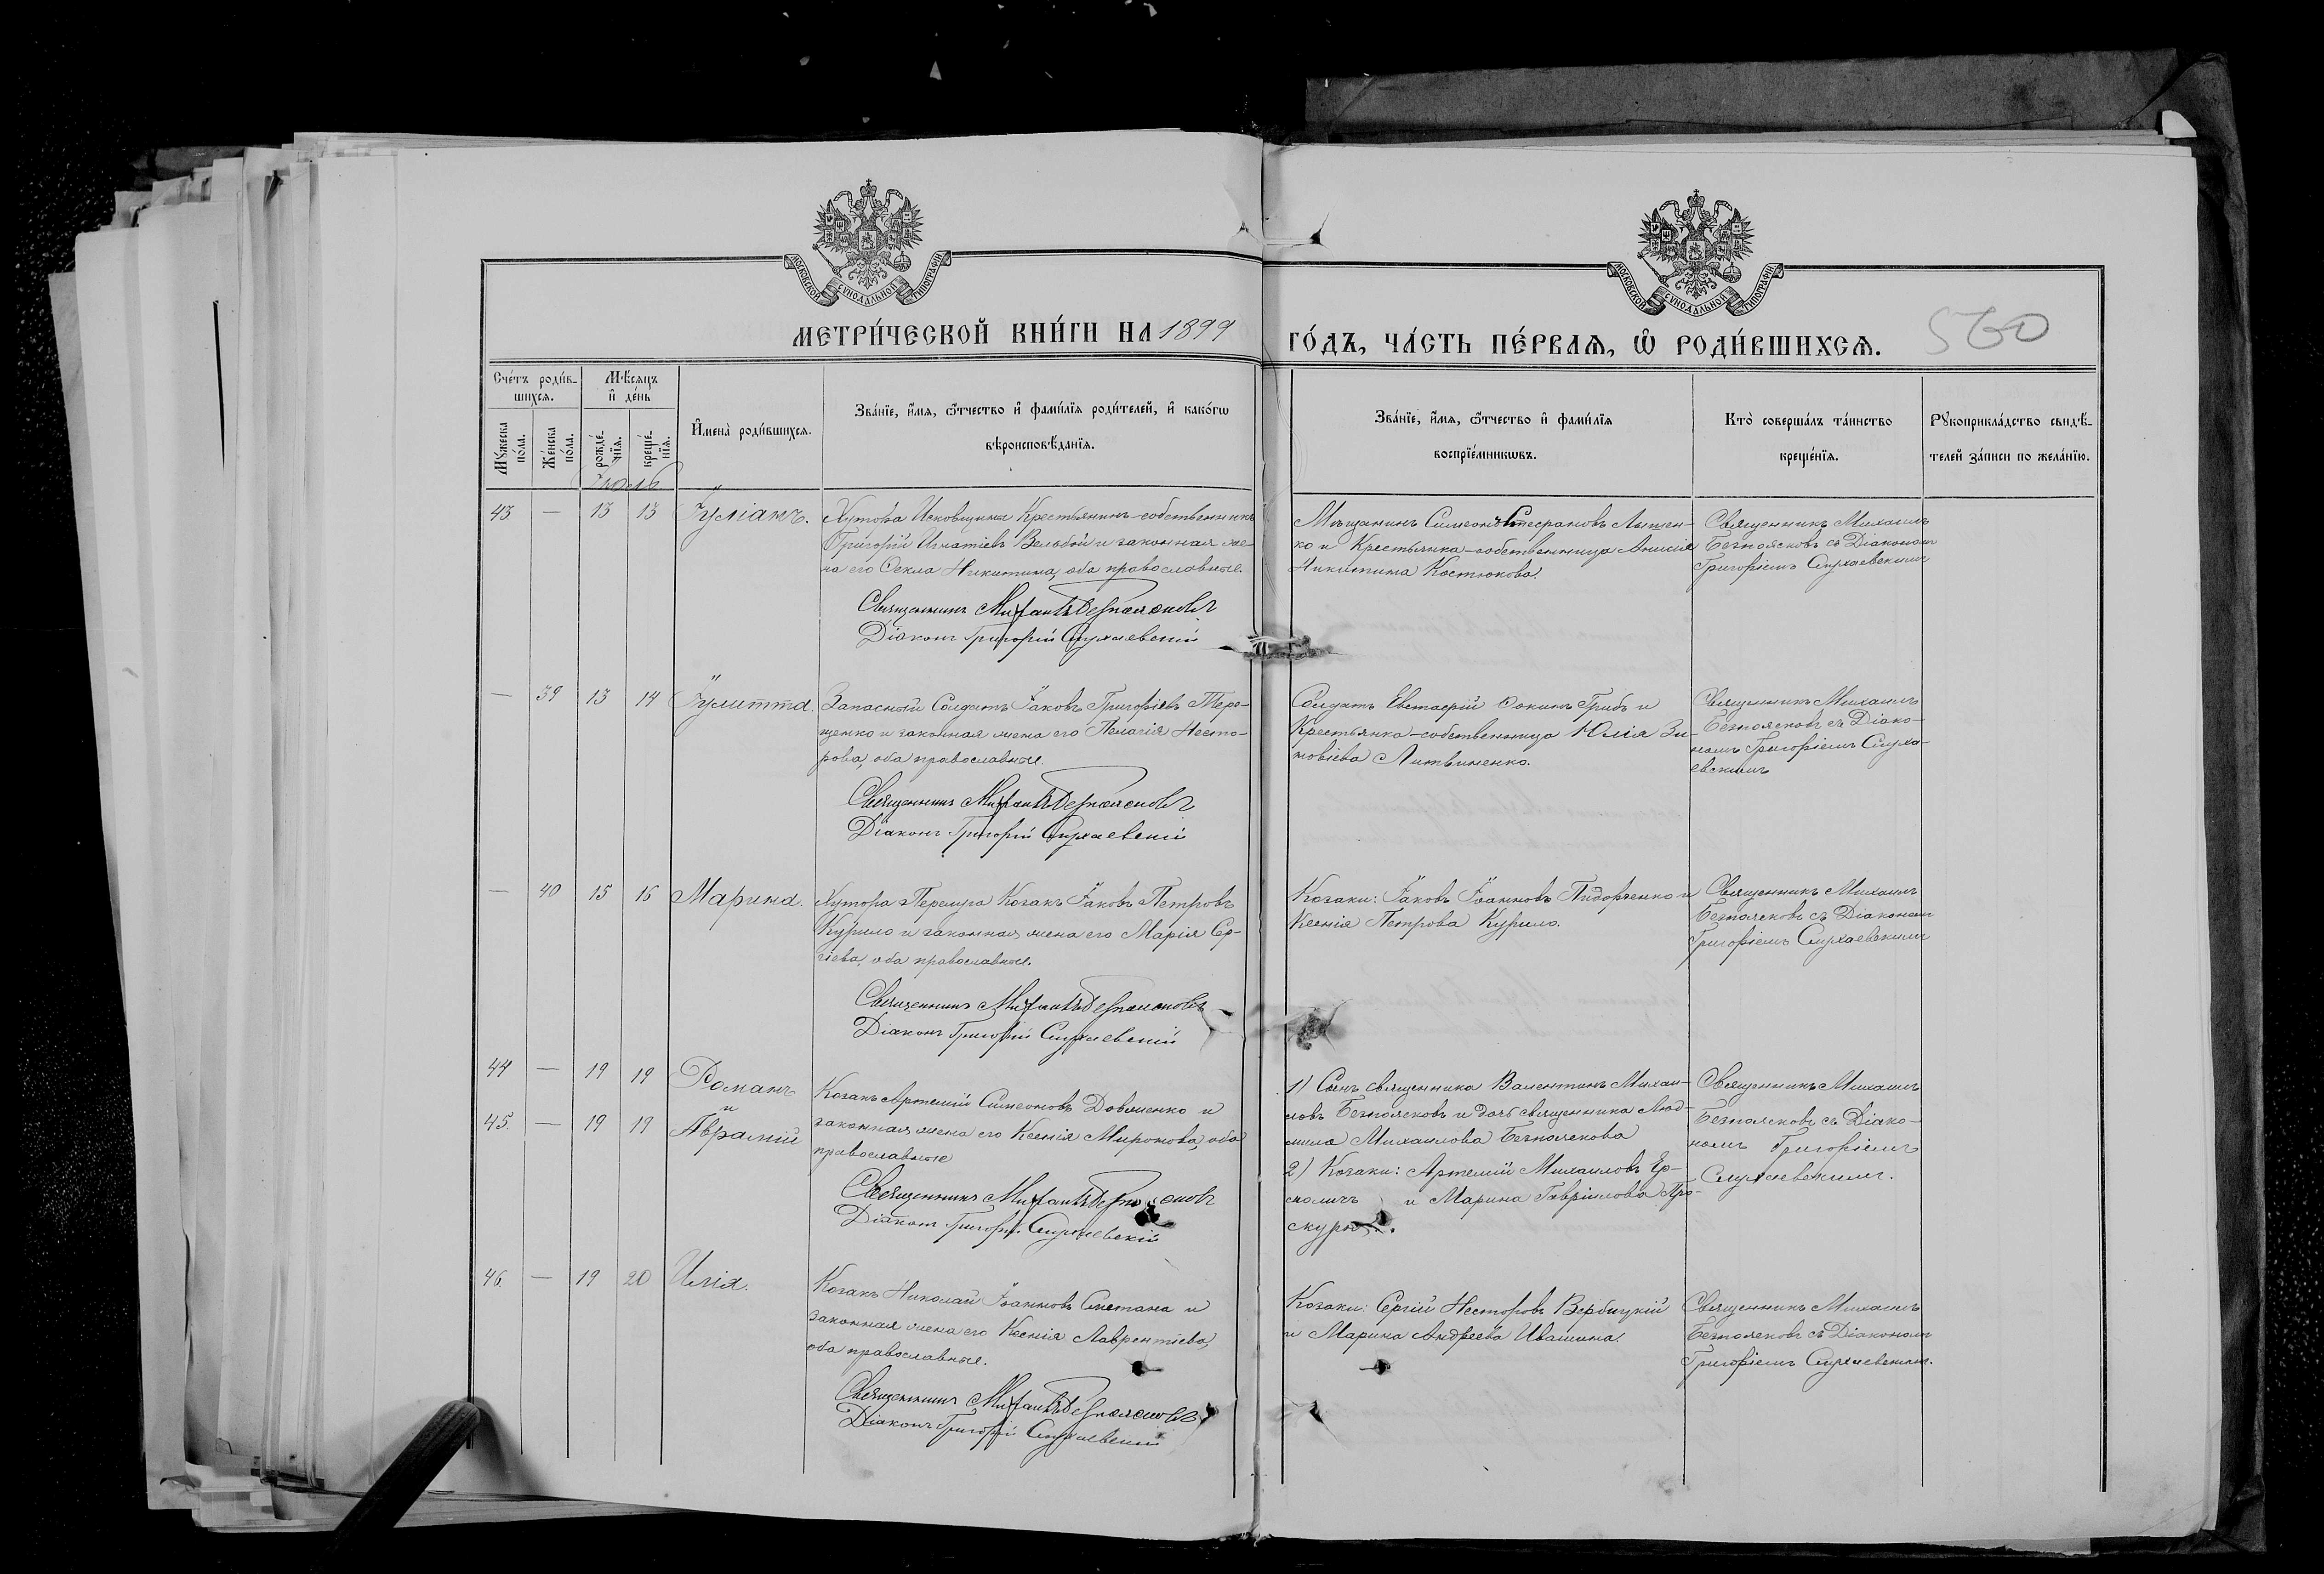 МОСКОВСКОЙ СѴНОДАЛЬНОЙ ТИПОГРАФІИ
МОСКОВСКОЙ СѴНОДАЛЬНОЙ ТИПОГРАФІИ
МЕТРИ́ЧЕСКОЙ КНИ́ГИ НА 1899 ГО́ДЪ, ЧА́СТЬ ПЕ́РВАѦ, Ѡ҆ РОДИ́ВШИХСѦ.
560
Сче́тъ роди́в-
шихсѧ.
Мѣ́сѧцъ
и҆ де́нь
Мꙋ́жеска
по́ла.
Же́нска
по́ла.
рожде́-
нїѧ.
креще́-
нїѧ.
И҆мена̀ роди́вшихсѧ.
Зва́нїе, и҆́мѧ, ѻ҆́тчество и҆ фами́лїѧ роди́телей, и҆ како́гѡ
вѣроисповѣ́данїѧ.
Зва́нїе, и҆́мѧ, ѻ҆́тчество и҆ фами́лїѧ
воспрїе́мникѡвъ.
Кто̀ соверша́лъ та́инство
креще́нїѧ.
Рꙋкоприкла́дство свидѣ́-
телей за́писи по жела́нїю.
Іюль
43 — 13 13 Іуліанъ.
Хутора Исковщины Крестьянинъ-собственникъ
Григорій Игнатіевъ Вельбой и законная же-
на его Ѳекла Никитина, оба православные.
Священникъ Михаилъ Безпоясковъ
Діаконъ Григорій
Мѣщанинъ Симеонъ Стефановъ
ко и Крестьянка-собственница Анисія
Никитина Костюкова.
Священникъ Михаилъ
Безпоясковъ съ Діакономъ
Григоріемъ
— 39 13 14 Іулитта.
Запасный Солдатъ Іаковъ Григоріевъ Тере-
щенко и законная жена его Пелагія Несто-
рова, оба православные.
Священникъ Михаилъ Безпоясковъ
Діаконъ Григорій
Солдатъ Евстафій Ѳокинъ Грибъ и
Крестьянка-собственница Юлія Зи-
новіева Литвиненко.
Священникъ Михаилъ
Безпоясковъ съ Діако-
номъ Григоріемъ
евскимъ
— 40 15 16 Марина.
Хутора Перемога Козакъ Іаковъ Петровъ
Курило и законная жена его Марія Сер-
гіева, оба православные.
Священникъ Михаилъ Безпоясковъ
Діаконъ Григорій
Козаки: Іаковъ Іоанновъ Пидорченко и
Ксенія Петрова Курило.
Священникъ Михаилъ
Безпоясковъ съ Діакономъ
Григоріемъ
44 — 19 19 Романъ
и
45. — 19 19 Аврамій
Козакъ Артемій Симеоновъ Довженко и
законная жена его Ксенія Миронова, оба
православные
Священникъ Михаилъ
Діаконъ Григорій
1) Сынъ священника Валентинъ Михаи-
ловъ Безпоясковъ и дочь священника Люд-
мила Михаилова Безпояскова
2) Козаки: Артемій Михаиловъ Ер-
и Марина Гавріилова Про-
Священникъ Михаилъ
Безпоясковъ съ Діако-
номъ Григоріемъ
46. — 19 20 Илія.
Козакъ Николай Іоанновъ Сметана и
законная жена его Ксенія Лаврентіева,
оба православные.
Священникъ Михаилъ Безпоясковъ
Діаконъ Григорій
Козаки: Сергій Несторовъ Вербицкій
и Марина Андреева Ивашина.
Священникъ Михаилъ
Безпоясковъ съ Діакономъ
Григоріемъ